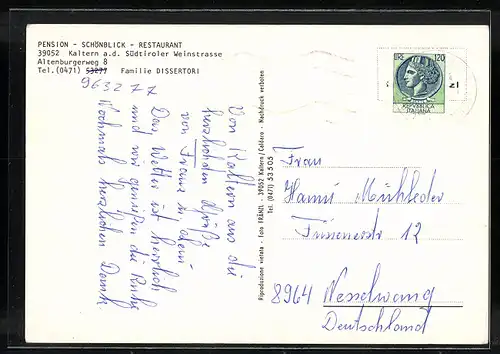 PENSION - SCHÖNBLICK - RESTAURANT
39052 Kaltern a.d. Südtiroler Weinstrasse
Altenburgerweg 8
Tel.(0471) 53277 Familie DISSERTORI
963277
Von Kaltern aus die
herzlichsten Grüße
von Franz u. Heini
Das Wetter ist herrlich
und wir genießen die Ruhe
Nochmals herzlichen Dank.
Riproduzione vietata - Foto FRÄNZL - 39052 Kaltern / Caldaro - Nachdruck verboten
Tel. (0471) 53505
LIRE 120
REPVBBLICA
ITALIANA
Frau
Hanni Mühleder
12
8964 Nesselwang
Deutschland